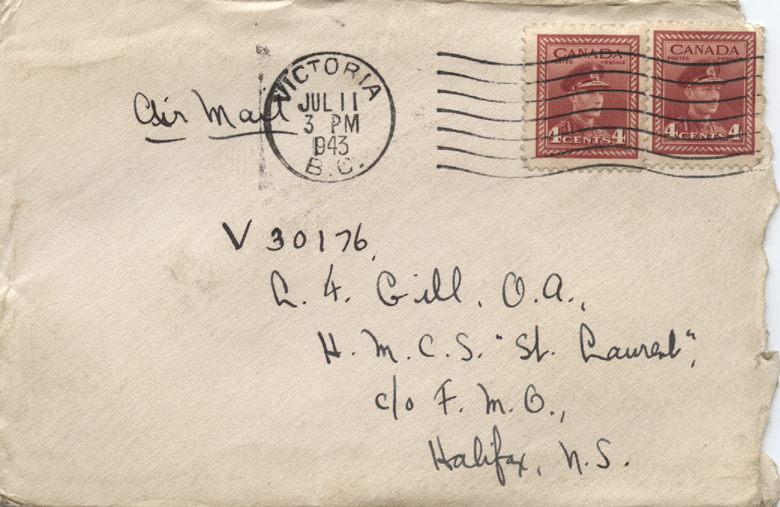 Air Mail
VICTORIA
JUL 11
3 PM
1943
B.C.
CANADA
POSTES POSTAGE
4 CENTS 4
CANADA
POSTES POSTAGE
4 CENTS 4
V 30176,
L. H. Gill, O.A.,
H. M. C. S. "St. Laurent",
c/o F. M. O.,
Halifax, N.S.